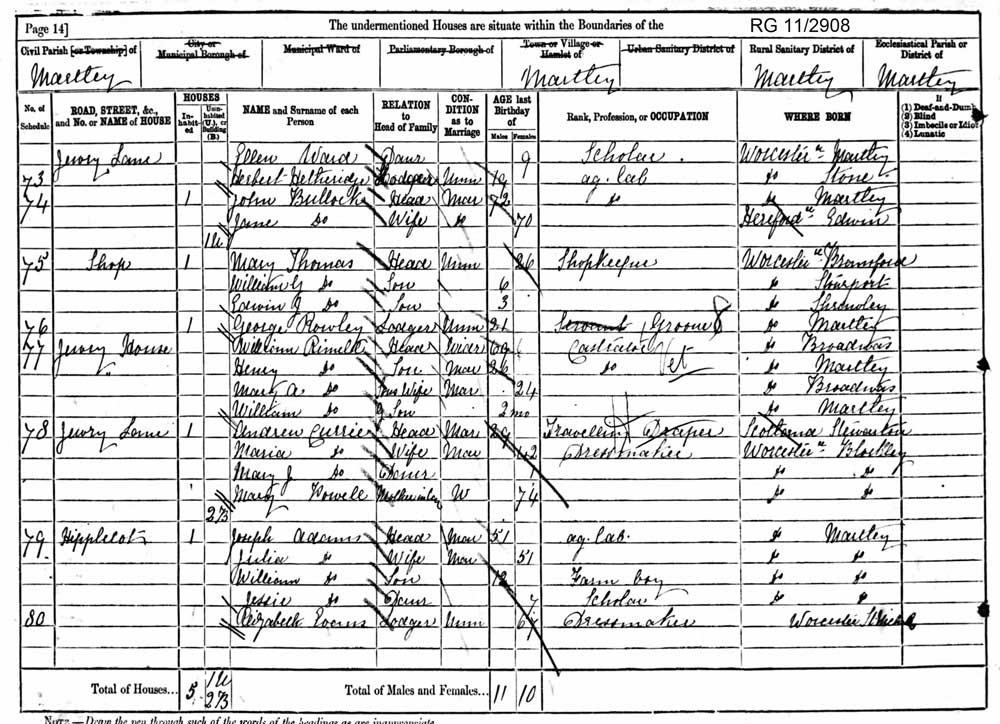 Page 14] The undermentioned Houses are situate within the Boundaries of the RG 11/2908
Civil Parish [or Township] of City or Municipal Borough of Municipal Ward of Parliamentary Borough of Town or Village or Hamlet of Urban Sanitary District of Rural Sanitary District of Ecclesiastical Parish or District of
Martley Martley Martley Martley
No. of Schedule ROAD, STREET, &c., and No. or NAME of HOUSE HOUSES Inhabited Uninhabited (U.), or Building (B.) NAME and Surname of each Person RELATION to Head of Family CONDITION as to Marriage AGE last Birthday of Males Females Rank, Profession, or OCCUPATION WHERE BORN If (1) Deaf-and-Dumb (2) Blind (3) Imbecile or Idiot (4) Lunatic
Jewry Lane Ellen Ward Daur 9 Scholar Worcester Martley
73 Herbert Hetheridge Lodger Unm 19 ag. lab do Stone
74 1 John Bullock Head Mar 72 do do Martley
Jane Do Wife do 70 Hereford Edwin
1U
75 Shop 1 Mary Thomas Head Unm 26 Shopkeeper Worcester Bransford
William G Do Son 6 do Stourport
Edwin J Do Son 3 do Shrawley
76 1 George Rowley Lodger Unm 21 Servant Groom do Martley
77 Jewry House William Head Castrator Vet do Broadwas
Henry do Son Mar 26 do do Martley
Mary A. do Sons Wife Mar 24 do Broadwas
William do g Son 2 mo do Martley
78 Jewry Lane 1 Andrew Currie Head Mar 29 Travelling Draper Scotland Stewarton
Maria do Wife Mar 42 Dressmaker Worcester Blockley
Mary J do Daur do do
Mary Powell W 74 do do
2B
79 Hipplecot 1 Joseph Adams Head Mar 51 ag. lab. do Martley
Julia do Wife Mar 51 do do
William do Son 12 Farm boy do do
Jessie do Daur 7 Scholar do do
80 Elizabeth Evans Lodger Unm 67 Dressmaker Worcester
Total of Houses... 5 1U 2B Total of Males and Females... 11 10
NOTE.—Draw the pen through such of the words of the headings as are inappropriate.